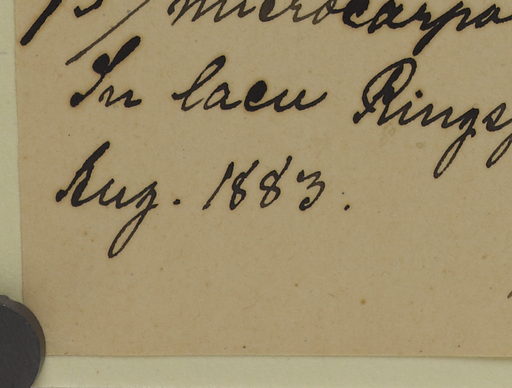 β) microcarpa
In lacu Rings
Aug. 1883.